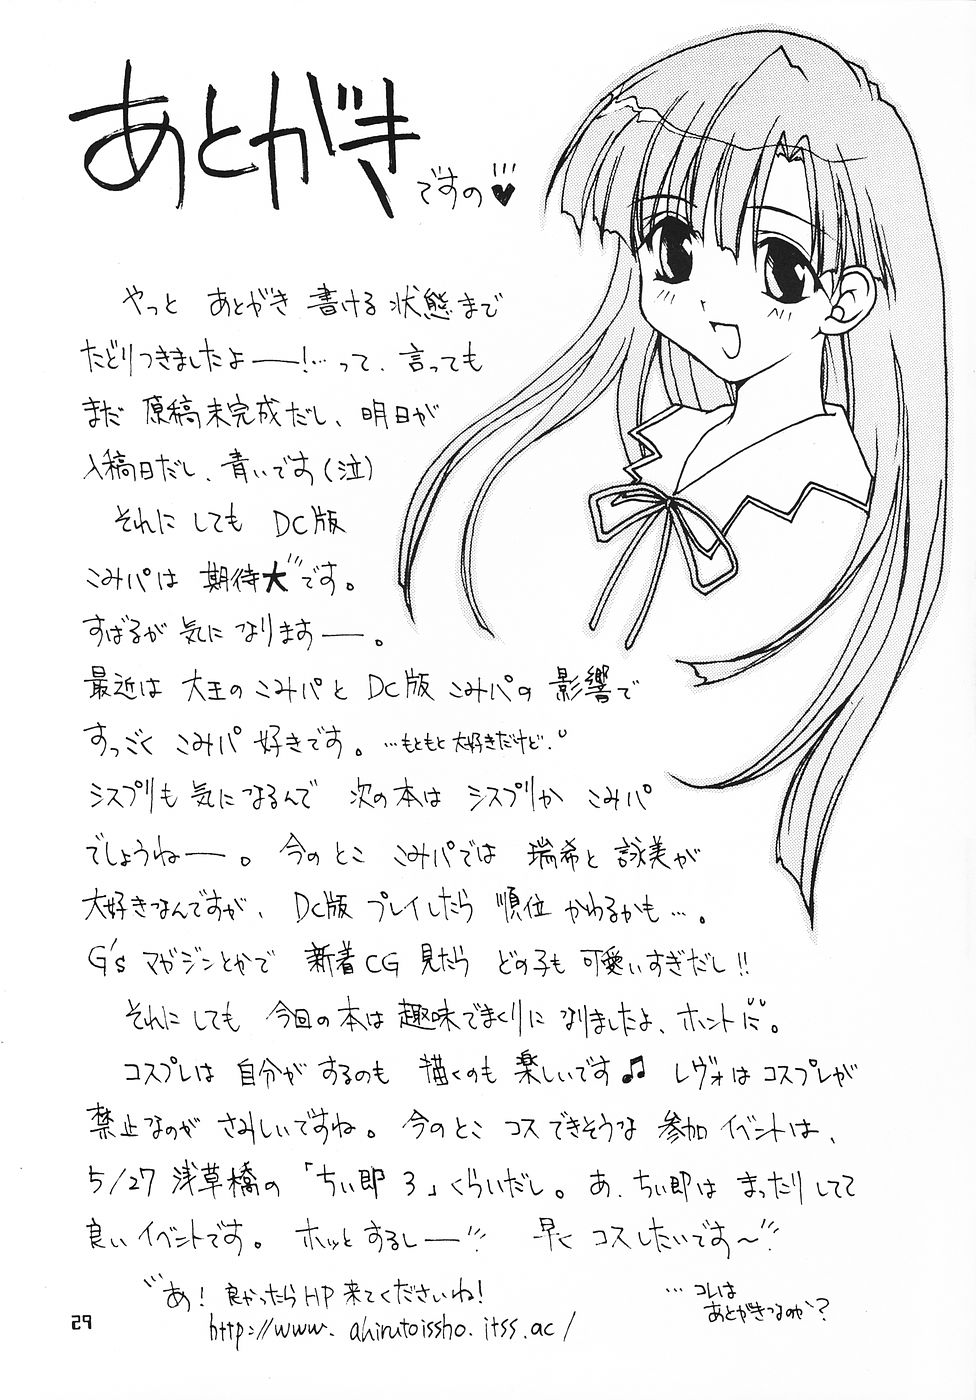 あとがき
ですの♥
やっと あとがき 書ける 状態まで
たどりつきましたよ――!…って、言っても
まだ 原稿未完成だし、明日が
入稿日だし、青いです(泣)
それにしても DC版
こみパは 期待大です。
すばるが 気に なります――。
最近は 大王の こみパと DC版 こみパの 影響で
すっごく こみパ 好きです。…もともと 大好きだけど。
シスプリも 気に なるんで 次の本は シスプリか こみパ
でしょうね――。今のとこ こみパでは 瑞希と 詠美が
大好きなんですが、DC版 プレイしたら 順位 かわるかも…。
G'sマガジンとかで 新着CG 見たら どの子も 可愛いすぎだし!!
それにしても 今回の本は 趣味でまくりに なりましたよ、ホントに。
コスプレは 自分が するのも 描くのも 楽しいです♫ レヴォは コスプレが
禁止なのが さみしいですね。今のとこ コス できそうな 参加 イベントは、
5/27 浅草橋の 「ちぃ即 3」くらいだし。あ、ちぃ即は まったりしてて
良い イベントです。ホッと するし―― 早く コスしたいです〜
あ! 良かったら HP 来てくださいね!
http://www.ahirutoissho.itss.ac/
…コレは
あとがきなのか?
29